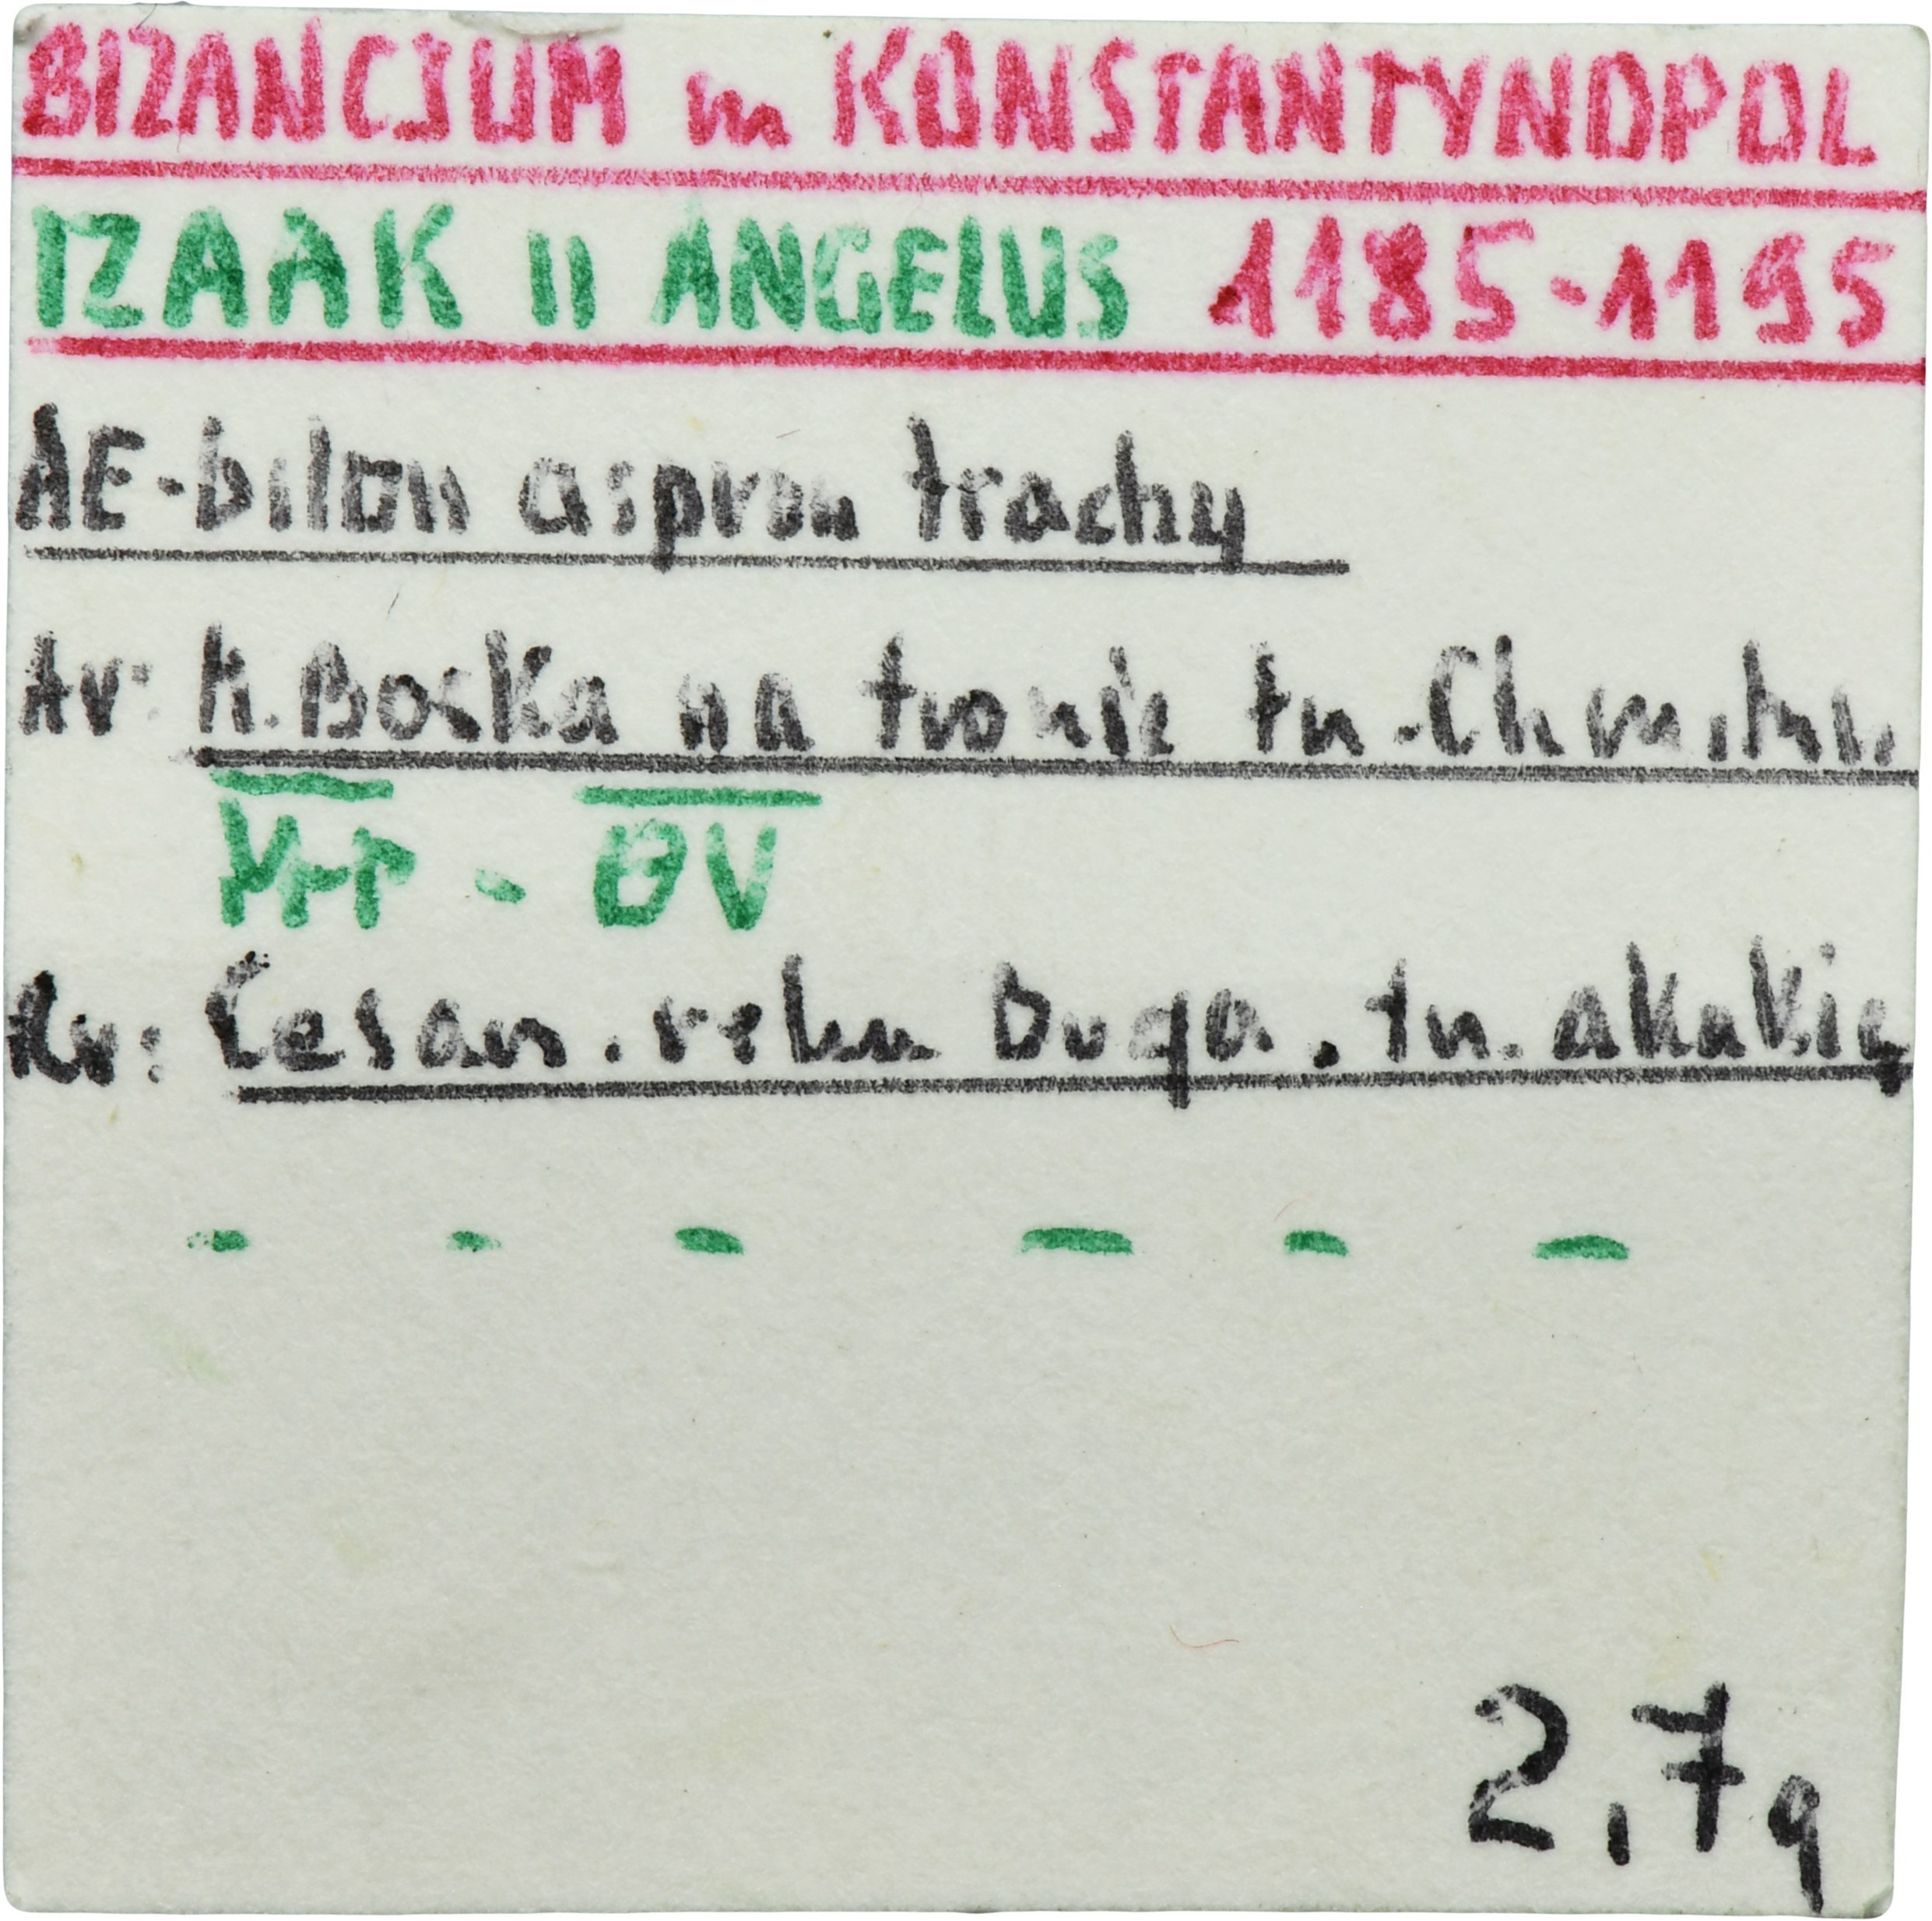 BIZANCJUM m KONSTANTYNOPOL
IZAAK II ANGELUS 1185-1195
AE-bilon aspron trachy
Av: M.Boska na tronie tn.
M̅P̅ - Θ̅V̅
Rv: Cesarz. Boga. tn. akakię
- - - - - -
2,7g